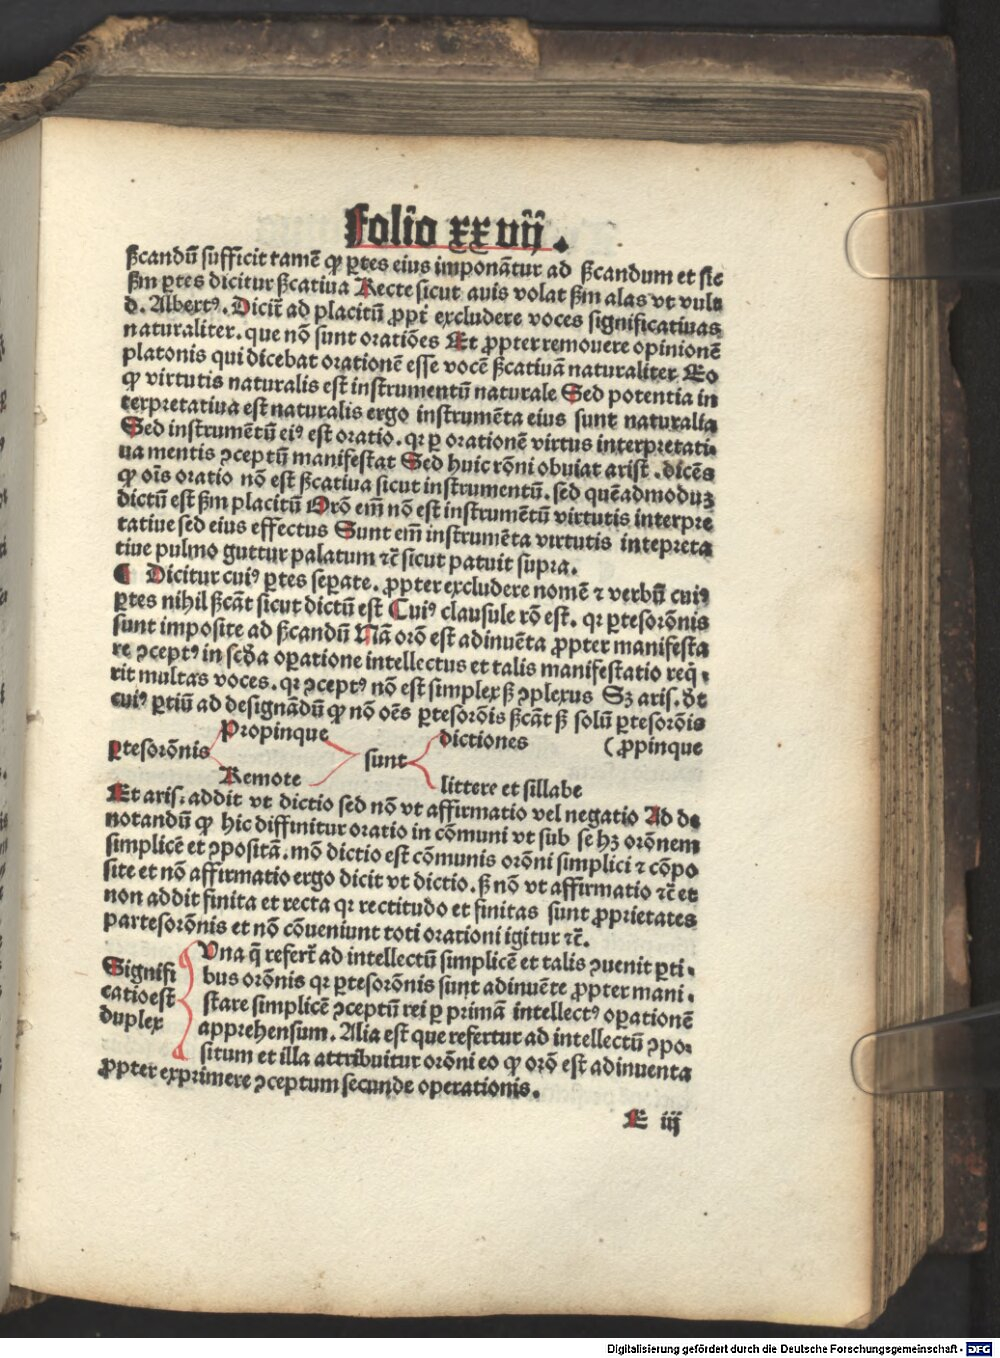 folio xxvij.
ẞcandū sufficit tamē ꝙ ꝑtes eius imponātur ad ẞcandum et sic
ẞm ꝑtes dicitur ẞcatiua Recte sicut auis volat ẞm alas vt vult
d. Albertꝰ. Dicit̄ ad placitū ꝓpt̄ excludere voces significatiuas
naturaliter. que nō sunt oratiōes Et ꝓpter remouere opinionē
platonis qui dicebat orationē esse vocē ẞcatiuā naturaliter Eo
ꝙ virtutis naturalis est instrumentū naturale Sed potentia in
terpretatiua est naturalis ergo instrumēta eius sunt naturalia
Sed instrumētū eiꝰ est oratio. qꝛ ꝑ orationē virtus interpretati⸗
ua mentis ꝯceptū manifestat Sed huic rōni obuiat arist. dicēs
ꝙ oīs oratio nō est ẞcatiua sicut instrumentū. sed quēadmoduꝫ
dictū est ẞm placitū Orō em̄ nō est instrumētū virtutis interpre
tatiue sed eius effectus Sunt em̄ instrumēta virtutis intepreta
tiue pulmo guttur palatum ⁊c̄ sicut patuit supra.
¶ Dicitur cuiꝰ ꝑtes seꝑate. ꝓpter excludere nomē ⁊ verbū cuiꝰ
ꝑtes nihil ẞcāt sicut dictū est Cuiꝰ clausule rō est. qꝛ ꝑtesorōnis
sunt imposite ad ẞcandū Nā orō est adinuēta ꝓpter manifesta
re ꝯceptꝰ in scd̄a oꝑatione intellectus et talis manifestatio req̄⸗
rit multas voces. qꝛ ꝯceptꝰ nō est simplex ẞ ꝯplexus Sꝫ aris. dt̄
cuiꝰ ꝑtiū ad designādū ꝙ nō oēs ꝑtesorōis ẞcāt ẞ solū ꝑtesorōis
(ꝓpinque
ꝑtesorōnis Propinque Remote sunt dictiones littere et sillabe
Et aris. addit vt dictio sed nō vt affirmatio vel negatio Ad de
notandū ꝙ hic diffinitur oratio in cōmuni vt sub se hꝫ orōnem
simplicē et ꝯpositā. mō dictio est cōmunis orōni simplici ⁊ cōpo
site et nō affirmatio ergo dicit vt dictio. ẞ nō vt affirmatio ⁊c̄ et
non addit finita et recta qꝛ rectitudo et finitas sunt ꝓprietates
partesorōnis et nō cōueniunt toti orationi igitur ⁊c̄.
Signifi
catio est
duplex
Una q̄ refert̄ ad intellectū simplicē et talis ꝯuenit ꝑti⸗
bus orōnis qꝛ ꝑtesorōnis sunt adinuēte ꝓpter mani⸗
stare simplicē ꝯceptū rei ꝑ primā intellectꝰ oꝑationē
apprehensum. Alia est que refertur ad intellectū ꝯpo⸗
situm et illa attribuitur orōni eo ꝙ orō est adinuenta
ꝓpter exprimere ꝯceptum secunde operationis.
E iij
Digitalisierung gefördert durch die Deutsche Forschungsgemeinschaft - DFG